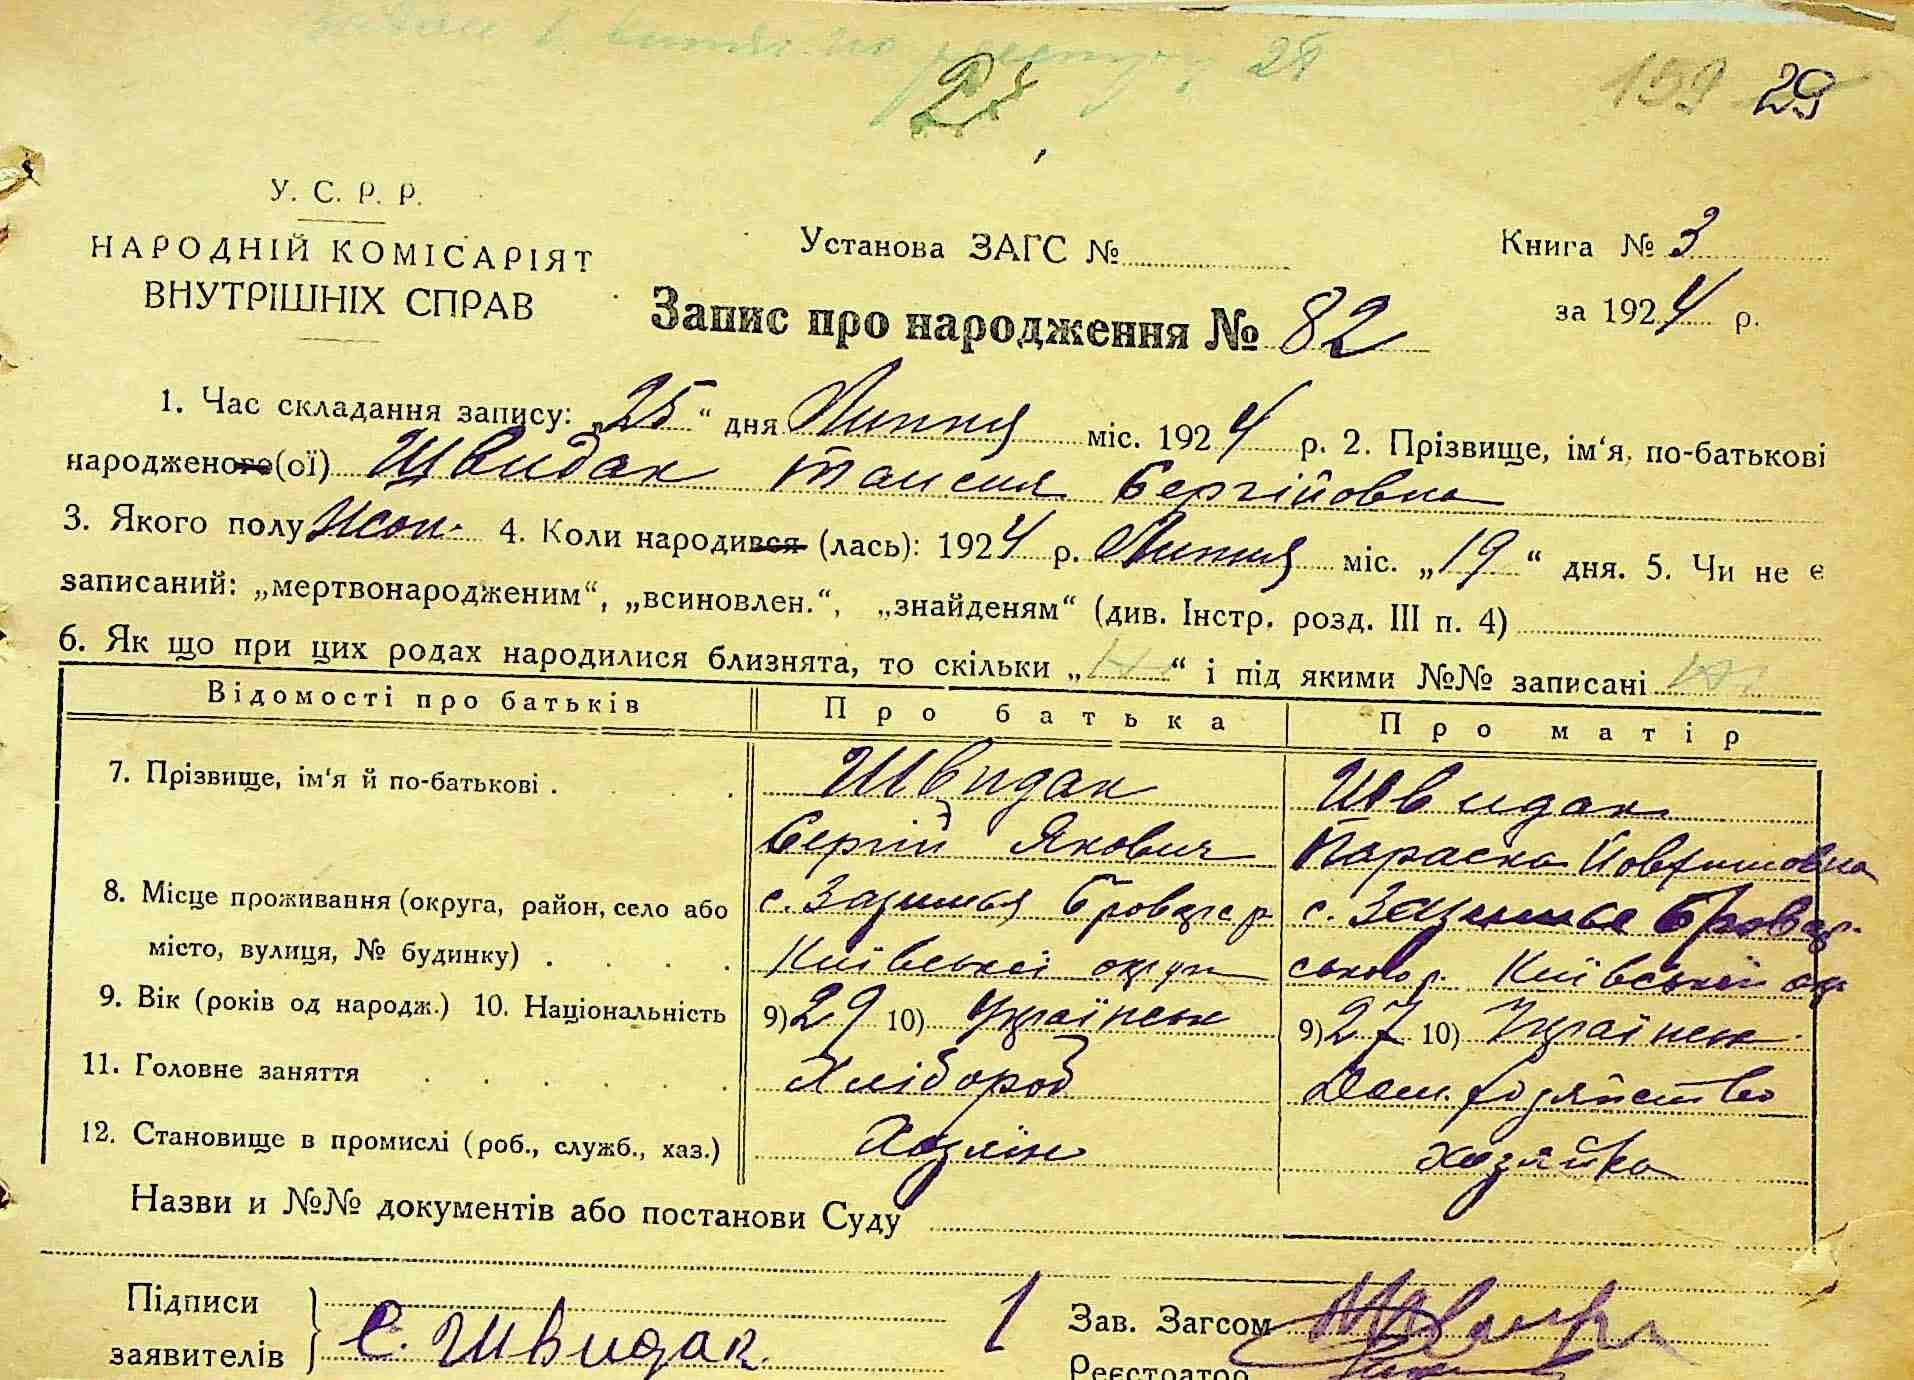 24
159 29
У. С. Р. Р.
НАРОДНІЙ КОМІСАРІЯТ
ВНУТРІШНІХ СПРАВ
Установа ЗАГС №
Книга № 3
за 1924 р.
Запис про народження № 82
1. Час складання запису: „25“ дня Липня міс. 1924 р. 2. Прізвище, ім‘я, по-батькові
народженого(ої) Швидак Таисия Сергійовна
3. Якого полу жон. 4. Коли народився (лась): 1924 р. Липня міс. „19“ дня. 5. Чи не є
записаний: „мертвонародженим“, „всиновлен.“, „знайденям“ (див. Інстр. розд. III п. 4)
6. Як що при цих родах народилися близнята, то скільки „ “ і під якими №№ записані
Відомості про батьків Про батька Про матір
7. Прізвище, ім‘я й по-батькові . Швидак Швидак
Сергій Якович Параска Йовхимовна
8. Місце проживання (округа, район, село або с. Зазимья Бровар. р. с. Зазимье Бровар-
місто, вулиця, № будинку) . Київської округи ського р. Київськой окр
9. Вік (років од народж.) 10. Національність 9) 29 10) Українськ 9) 27 10) Українськ.
11. Головне заняття Хлібороб Дом. хозяйство
12. Становище в промислі (роб., служб., хаз.) Хазяін хозяйка
Назви и №№ документів або постанови Суду
Підписи
заявителів } С. Швидак.
Зав. Загсом
Реєстратор